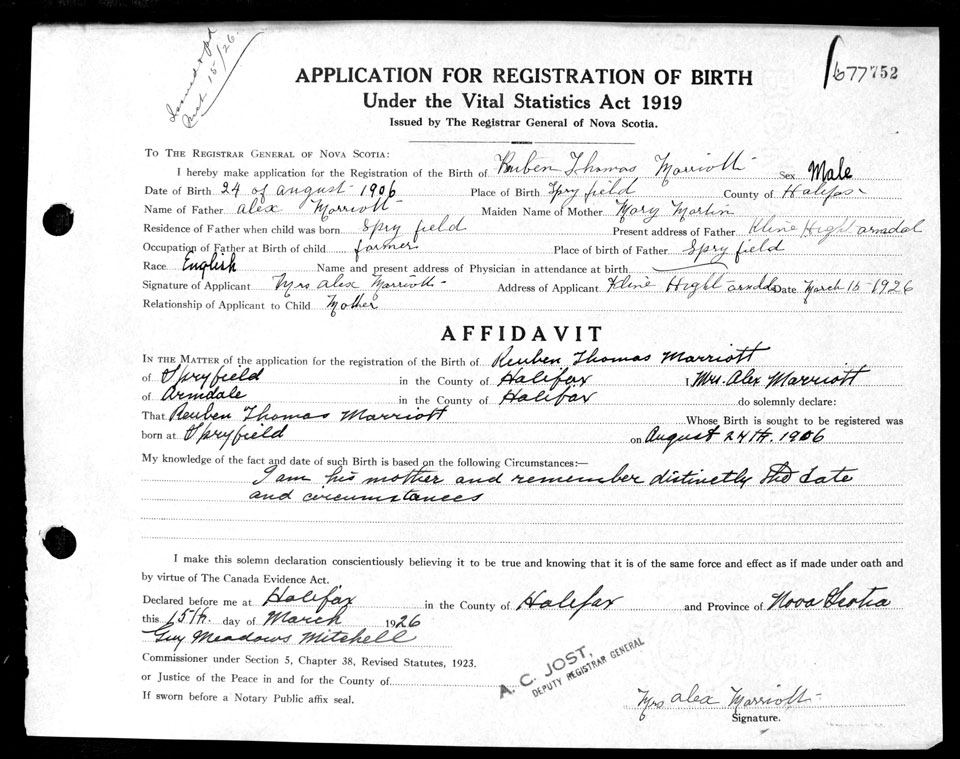 Mch 15/26.
677752
APPLICATION FOR REGISTRATION OF BIRTH
Under the Vital Statistics Act 1919
Issued by The Registrar General of Nova Scotia.
TO THE REGISTRAR GENERAL OF NOVA SCOTIA:
I hereby make application for the Registration of the Birth of Reuben Thomas Marriott Sex Male
Date of Birth 24 of august 1906 Place of Birth Spry field County of Halifax
Name of Father alex Marriott Maiden Name of Mother Mary Martin
Residence of Father when child was born Spry field Present address of Father Kline Hight armdal
Occupation of Father at Birth of child farmer Place of birth of Father Spry field
Race English Name and present address of Physician in attendance at birth
Signature of Applicant Mrs alex Marriott Address of Applicant Kline Hight armdale Date March 15-1926
Relationship of Applicant to Child Mother
AFFIDAVIT
IN THE MATTER of the application for the registration of the Birth of Reuben Thomas Marriott
of Spryfield in the County of Halifax I Mrs. Alex Marriott
of Armdale in the County of Halifax do solemnly declare:
That Reuben Thomas Marriott Whose Birth is sought to be registered was
born at Spryfield on August 24th, 1906
My knowledge of the fact and date of such Birth is based on the following Circumstances:—
I am his mother and remember distinctly the date
and circumstances
I make this solemn declaration conscientiously believing it to be true and knowing that it is of the same force and effect as if made under oath and
by virtue of The Canada Evidence Act.
Declared before me at Halifax in the County of Halifax and Province of Nova Scotia
this 15th. day of March 1926
Guy Meadows Mitchell
Commissioner under Section 5, Chapter 38, Revised Statutes, 1923.
or Justice of the Peace in and for the County of
If sworn before a Notary Public affix seal.
A. C. JOST,
DEPUTY REGISTRAR GENERAL
Mrs alex Marriott
Signature.